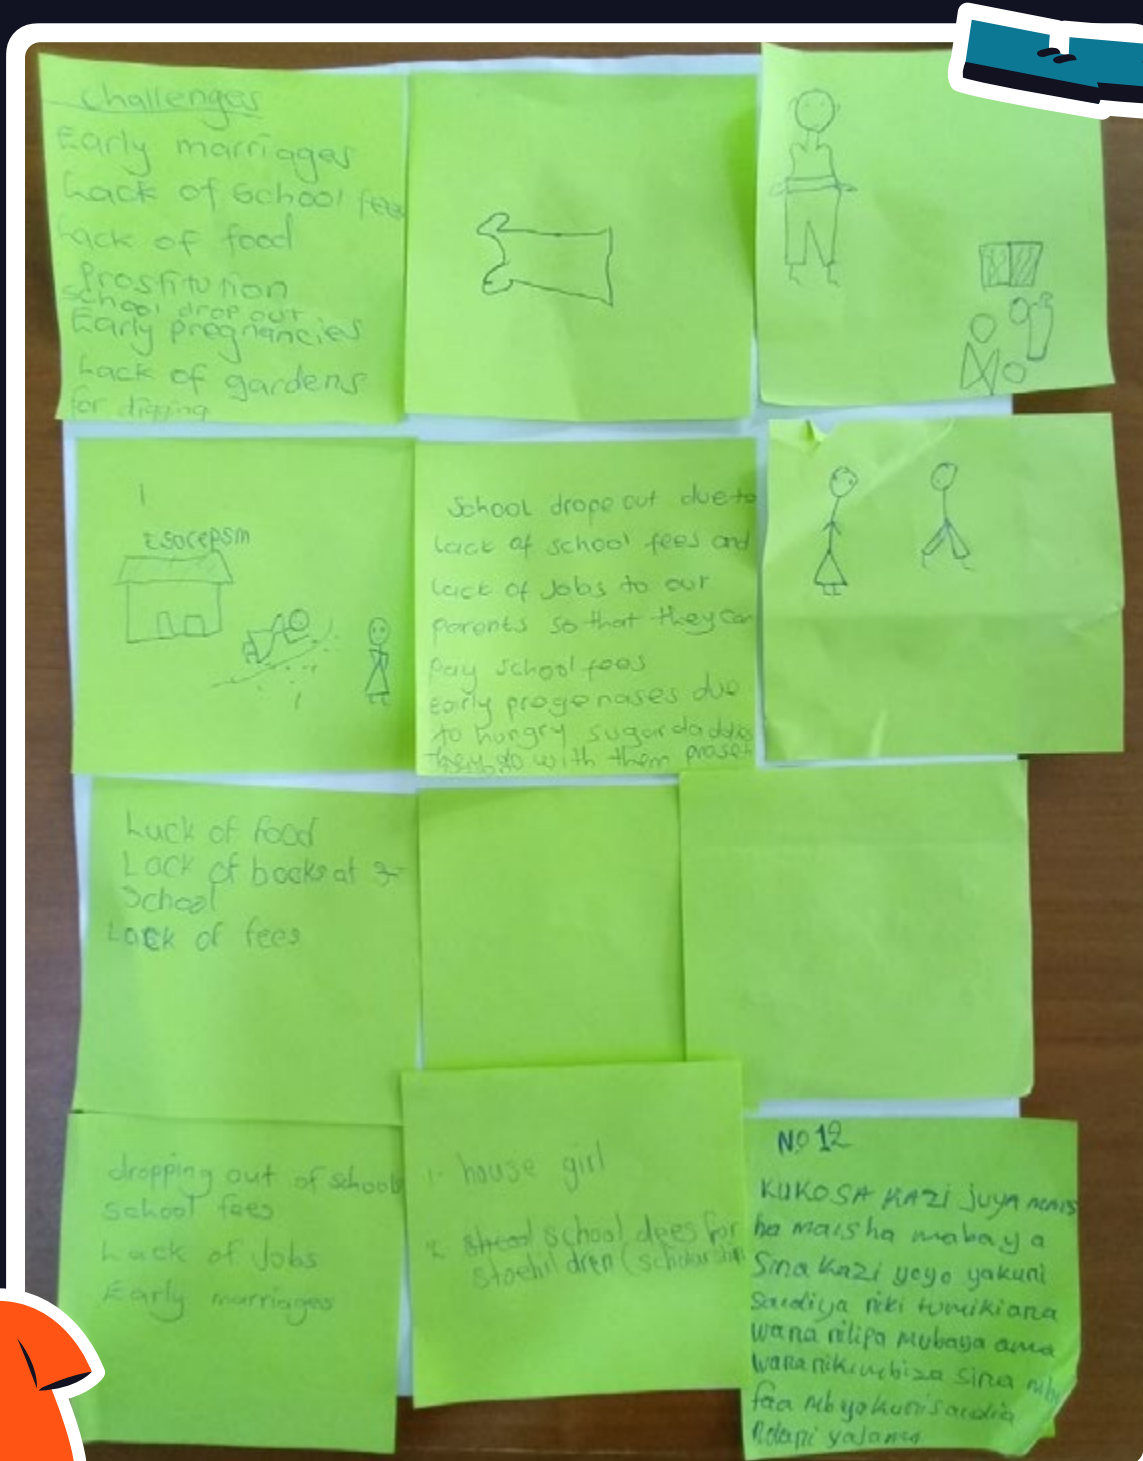 Challenges
Early marriages
Lack of School fees
Lack of food
Prostitution
School drop out
Early pregnancies
Lack of gardens
for digging
1
ESOCEPSM
School drope out due to
Lack of school fees and
Lack of Jobs to our
parents so that they can
pay school fees
Early due
to hungry sugar daddies
They go with them
Luck of food
Lack of books at
School
Lack of fees
dropping out of school
School fees
Lack of Jobs
Early marriages
1. house girl
2. school for
(scholarship
NO 12
KUKOSA KAZI juya
ha maisha mabaya
Sina Kazi yoyo yakuni
Saidiya niki tumikiana
wana nilipa mubaya ama
Sina
faa